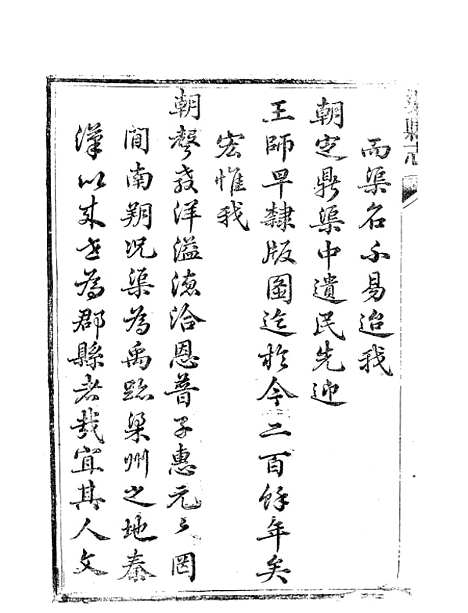 渠縣志
而渠名不易迨我
朝定鼎渠中遺民先迎
王師早隸版圖迄於今二百餘年矣
宏惟我
朝聲敎洋溢濊洽恩普子惠元元罔
間南朔况渠為禹跡梁州之地秦
漢以來世為郡縣者哉宜其人文